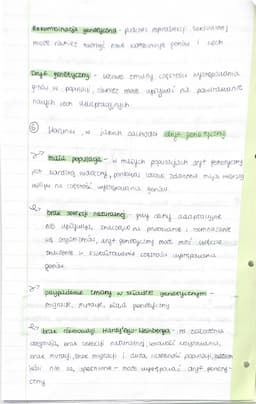 Rekombinacja genetyczna - podczas reprodukcji seksualnej
może również tworzyć nowe kombinacje genów i cech
Dryf genetyczny - losowe zmiany częstości występowania
genów w populacji, również może wpływać na powstawanie
nowych cech adaptacyjnych.
⑥ Warunki, w jakich zachodzi dryf genetyczny
mała populacja - w małych populacjach dryf genetyczny
jest bardziej widoczny, ponieważ losowe zdarzenia mają większy
wpływ na częstość występowania genów.
brak selekcji naturalnej - gdy cechy adaptacyjne
nie wpływają znacząco na przetrwanie i rozmnażanie
się organizmów, dryf genetyczny może mieć większe
znaczenie w kształtowaniu częstości występowania
genów.
przypadkowe zmiany w składzie genetycznym -
migracje, mutacje, efekt
brak równowagi Hardy'ego-Weinberga - te założenia
obejmują brak selekcji naturalnej, losowość kojarzenia,
brak mutacji, brak migracji i duża wielkość populacji,
jeśli nie są spełnione - może występować dryf genety-
czny